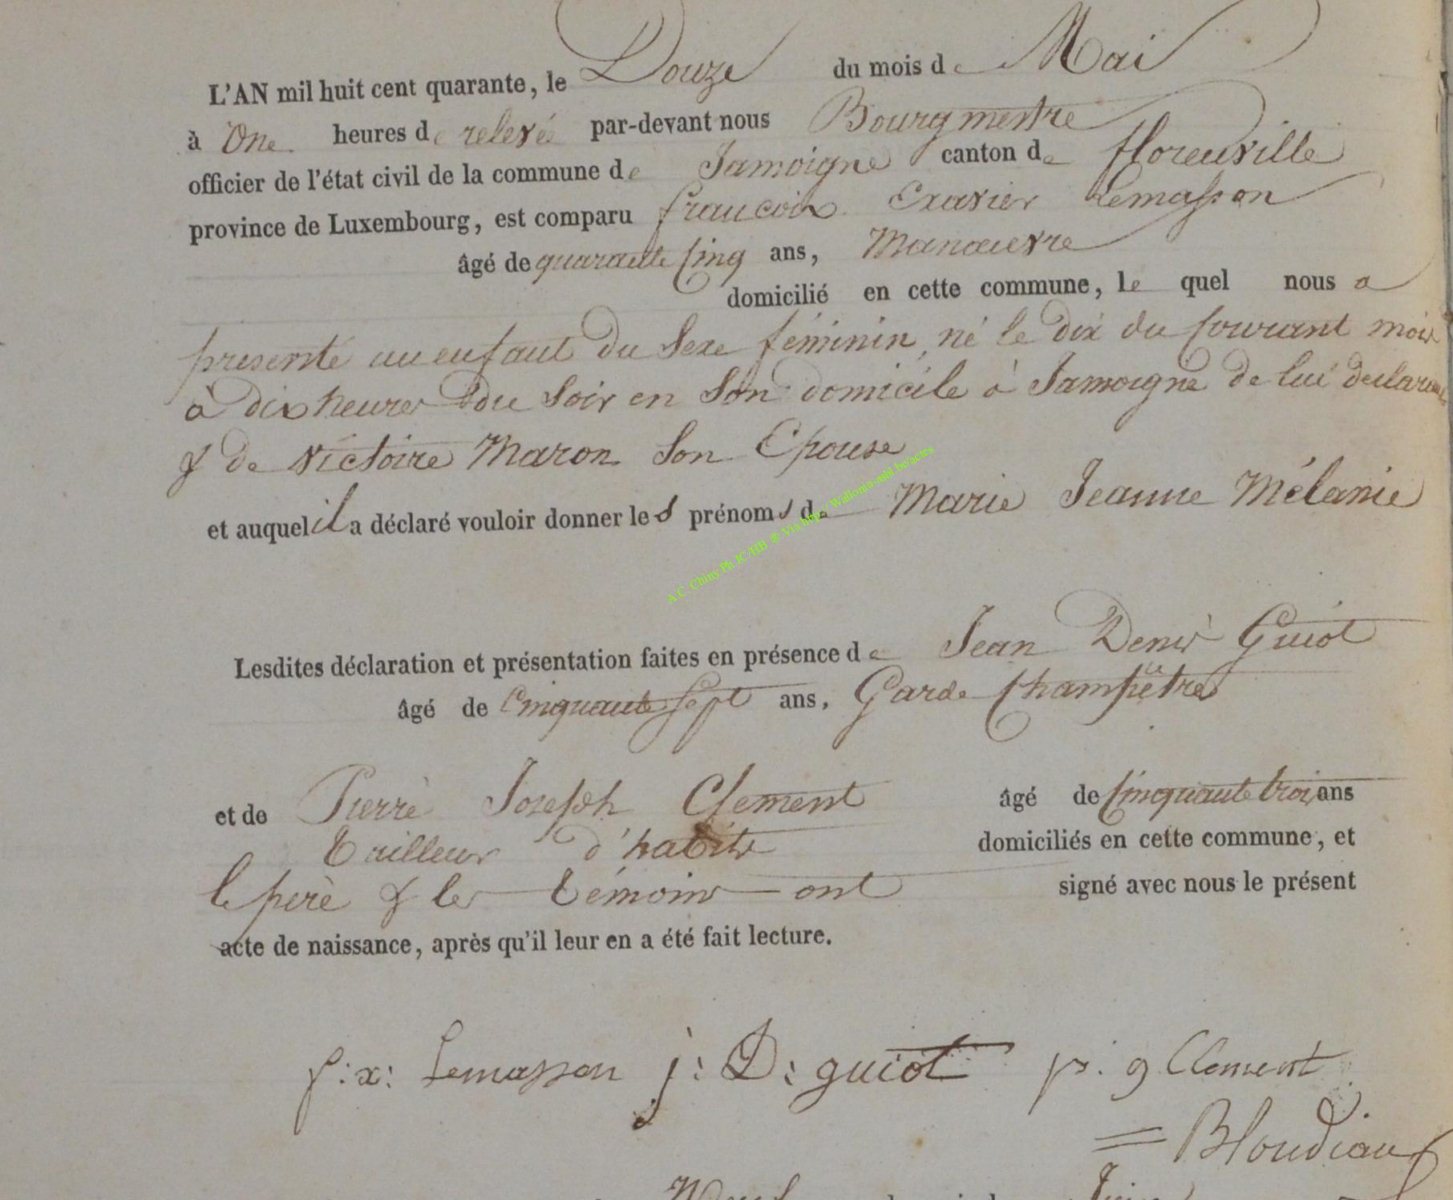 L'AN mil huit cent quarante, le Douze du mois de Mai
à One heures de relevée par-devant nous Bourgmestre
officier de l'état civil de la commune de Jamoigne canton de florenville
province de Luxembourg, est comparu francois Exavier Lemasson
âgé de quarante Cinq ans, Manœuvre
domicilié en cette commune, le quel nous a
présenté un enfant du Sexe féminin, né le dix du Courant mois
à dix heures du Soir en Son domicile à Jamoigne de lui déclarant
& de Victoire Maron Son Epouse
et auquel il a déclaré vouloir donner les prénoms de Marie Jeanne Mélanie
A.C. Chiny Ph.
Lesdites déclaration et présentation faites en présence de Jean Denis Guiot
âgé de Cinquante Sept ans, Garde Champêtre
et de Pierre Joseph Clement âgé de Cinquante trois ans
Tailleur d'habits domiciliés en cette commune, et
le père & les témoins ont signé avec nous le présent
acte de naissance, après qu'il leur en a été fait lecture.
f: x: Lemasson j: D: guiot p. g Clement
= Blondiau
Neuf Juin